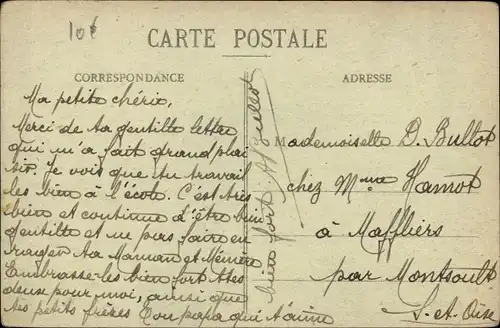 10f
CARTE POSTALE
CORRESPONDANCE
Ma petite chérie,
Merci de ta gentille lettre
qui m'a fait grand plai
sir. Je vois que tu travail
les bien à l'école. C'est très
bien et continue d'être bien
gentille et ne pas faire en
rager ta Maman et Mémère
Embrasse-les bien fort toutes
deux pour moi, ainsi que
tes petits frères Ton papa qui t'aime
bien fort
ADRESSE
Mademoiselle D. Bullot
chez Mme Hamot
à Maffliers
par Montsoult
S.-et-Oise